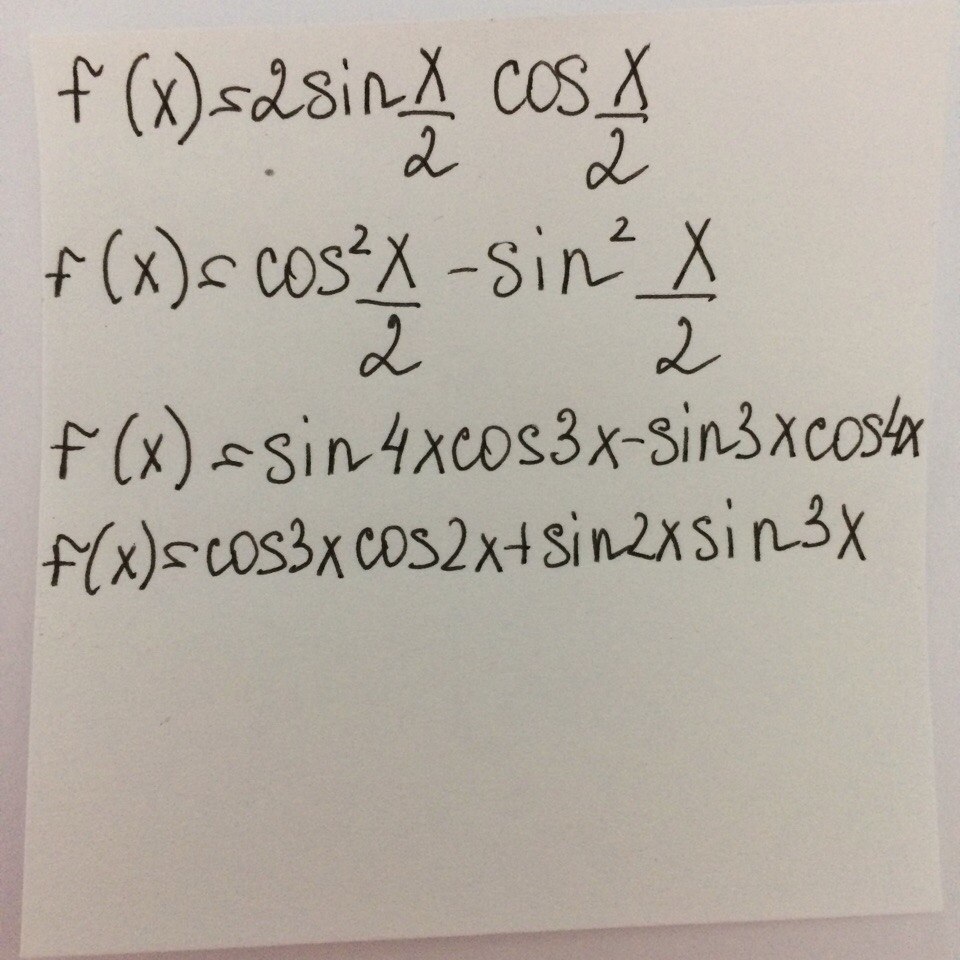 f(x)=2sin x/2 cos x/2
f(x)=cos² x/2 - sin² x/2
f(x)=sin4xcos3x-sin3xcos4x
f(x)=cos3xcos2x+sin2xsin3x